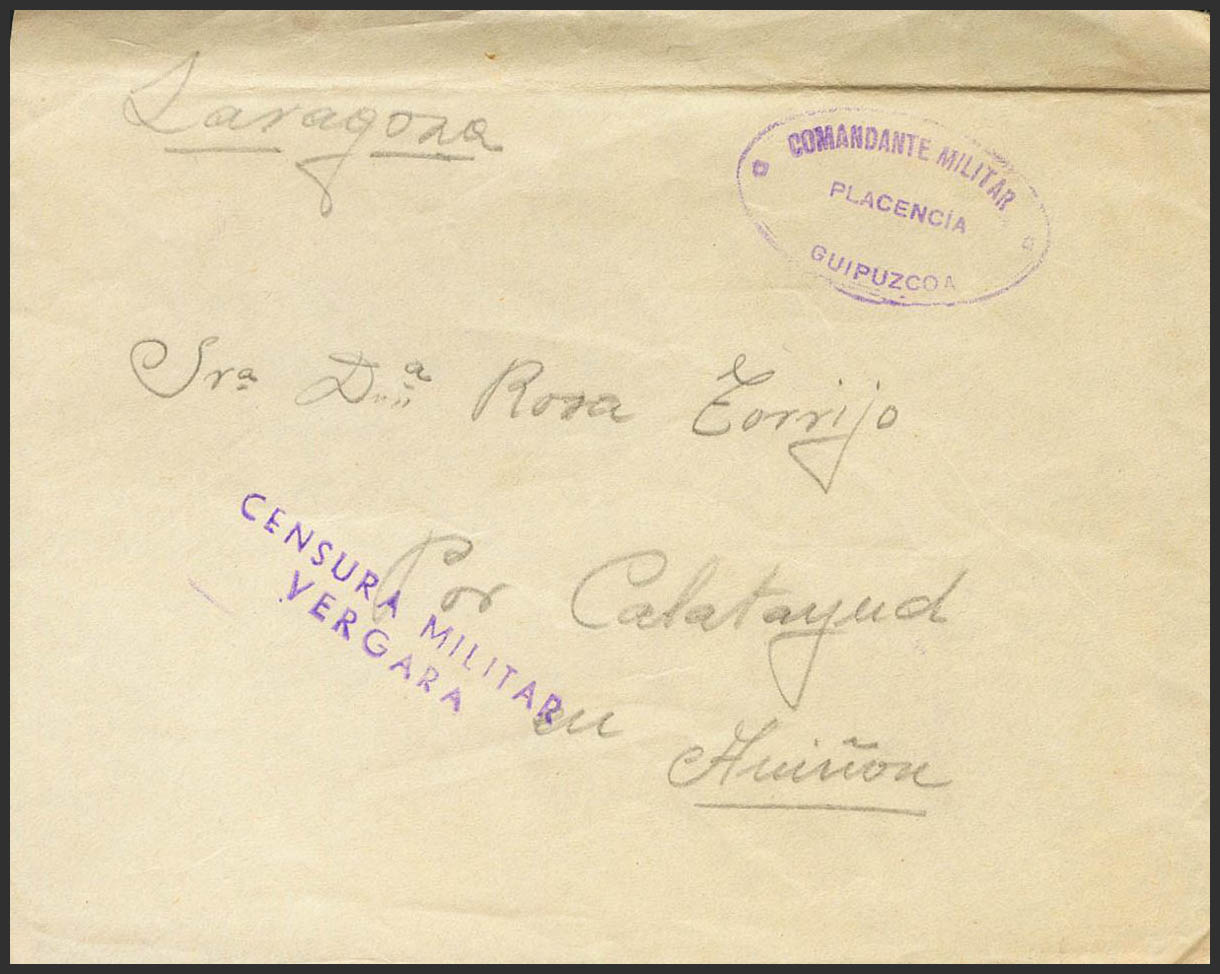 Zaragoza
COMANDANTE MILITAR
PLACENCIA
GUIPUZCOA
Sra Dña Rosa Torrijo
CENSURA MILITAR
VERGARA
Por Calatayud
en